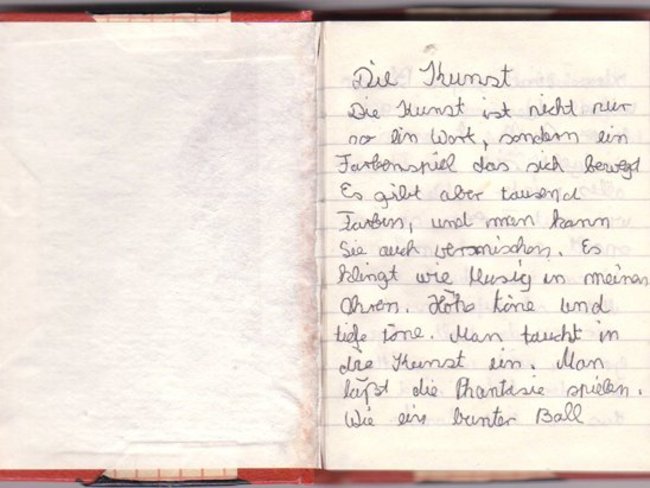 Die Kunst
Die Kunst ist nicht nur
so ein Wort, sondern ein
Farbenspiel das sich bewegt
Es gibt aber tausend
Farben, und man kann
Sie auch vermischen. Es
klingt wie Musig in meinen
Ohren. Hohe töne und
tiefe töne. Man taucht in
die Kunst ein. Man
läßt die Phantasie spielen.
Wie ein bunter Ball